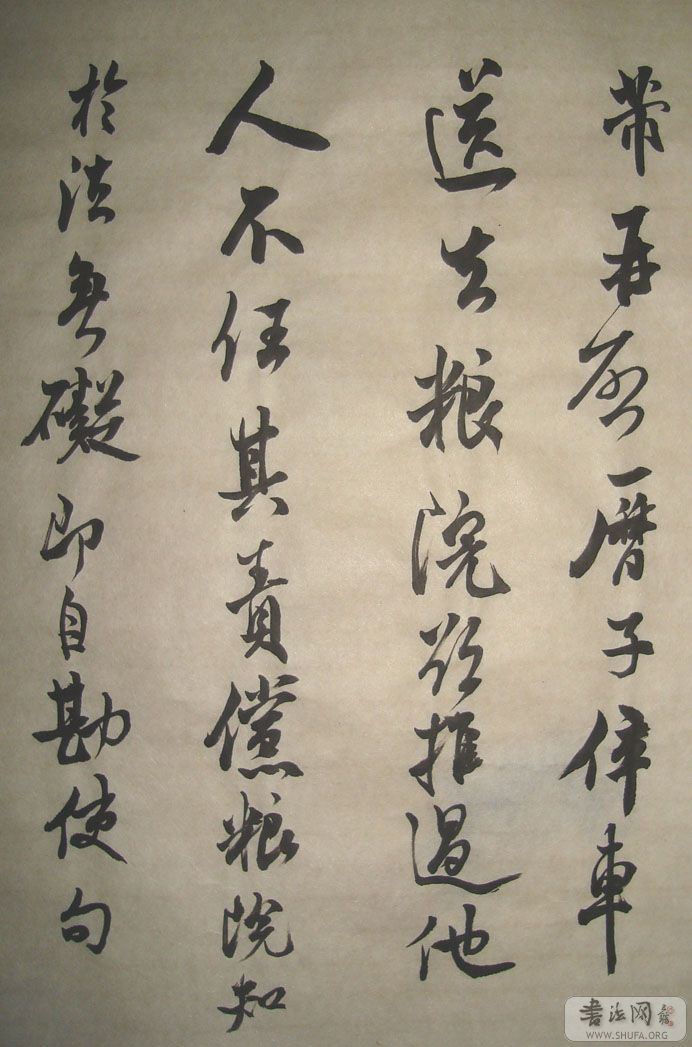 带曆子倅車
送去粮院欲推過他
人不任其責儻粮院知
於法無礙即自勘使句
書法网
WWW.SHUFA.ORG